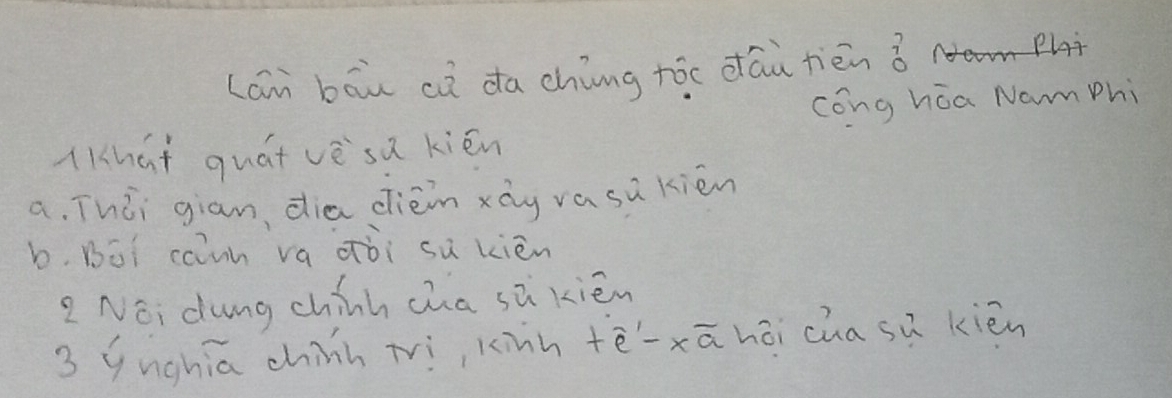 Lần bầu cử đa chủng tộc đầu tiên ở Nam Phi
cộng hòa Nam Phi
1 Khát quát về sự kiện
a. Thời gian, địa điểm xảy ra sự kiện
b. Bối cảnh ra đời sự kiện
2 Nội dung chính của sự kiện
3 Ý nghĩa chính trị, kinh tế - xã hội của sự kiện